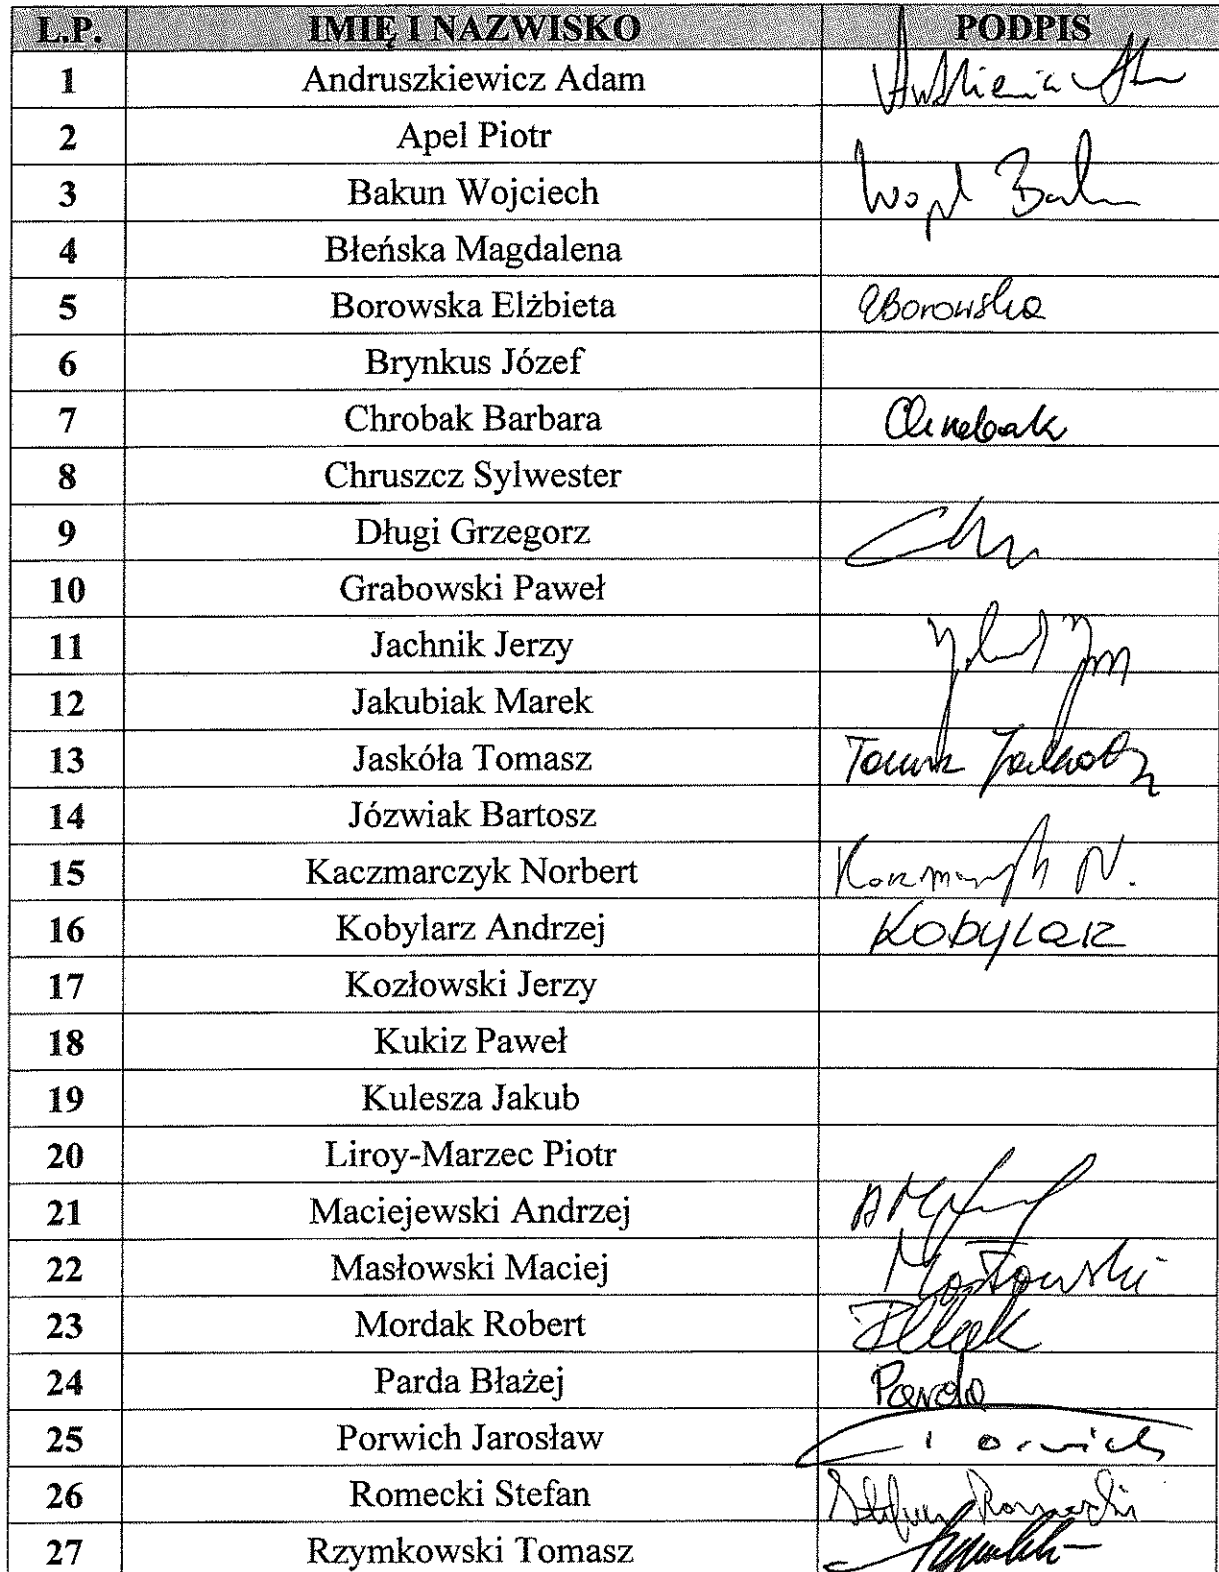 L.P. IMIĘ I NAZWISKO PODPIS
1 Andruszkiewicz Adam
2 Apel Piotr
3 Bakun Wojciech
4 Błeńska Magdalena
5 Borowska Elżbieta EBorowska
6 Brynkus Józef
7 Chrobak Barbara Chrobak
8 Chruszcz Sylwester
9 Długi Grzegorz
10 Grabowski Paweł
11 Jachnik Jerzy
12 Jakubiak Marek
13 Jaskóła Tomasz Tomasz Jaskóła
14 Józwiak Bartosz
15 Kaczmarczyk Norbert Kaczmarczyk N.
16 Kobylarz Andrzej Kobylarz
17 Kozłowski Jerzy
18 Kukiz Paweł
19 Kulesza Jakub
20 Liroy-Marzec Piotr
21 Maciejewski Andrzej
22 Masłowski Maciej Masłowski
23 Mordak Robert
24 Parda Błażej Parda
25 Porwich Jarosław Porwich
26 Romecki Stefan Stefan Romecki
27 Rzymkowski Tomasz